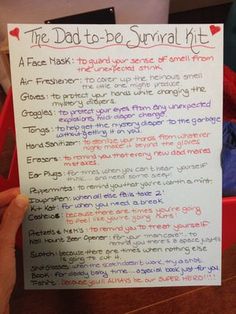 The Dad to-be Survival Kit
A Face Mask: to guard your sense of smell from
the unexpected stink
Air Freshener: to cover up the heinous smell
the little one might produce
Gloves: to protect your hands while changing the
mystery diapers.
Goggles: to protect your eyes from any unexpected
explosions mid diaper change.
Tongs: to help get the mystery diaper to the garbage
without getting it on you
Hand Sanitizer: to sterilize your hands from whatever
might make it beyond the gloves
Erasers: to remind you that every new dad makes
mistakes.
Ear Plugs: for times when you can't hear yourself
think... and need some
Peppermints: to remind you that you're worth a mint.
Ibuprofen: when all else fails take 2
Kit Kat: for when you need a break
Cashews: because there are times you're going
to feel like you're going nuts!
Pretzels & : to remind you to treat yourself
Wall Mount Beer Opener: for your "man cave" to
remind you there's a space just
Scotch: because there are times when nothing else
is going to cut it.
Shot Glasses: when the scotch doesn't work, try a shot
Book: for daddy baby time... a special book just for you
T-shirt: because you'll ALWAYS be our SUPER HERO!!!!